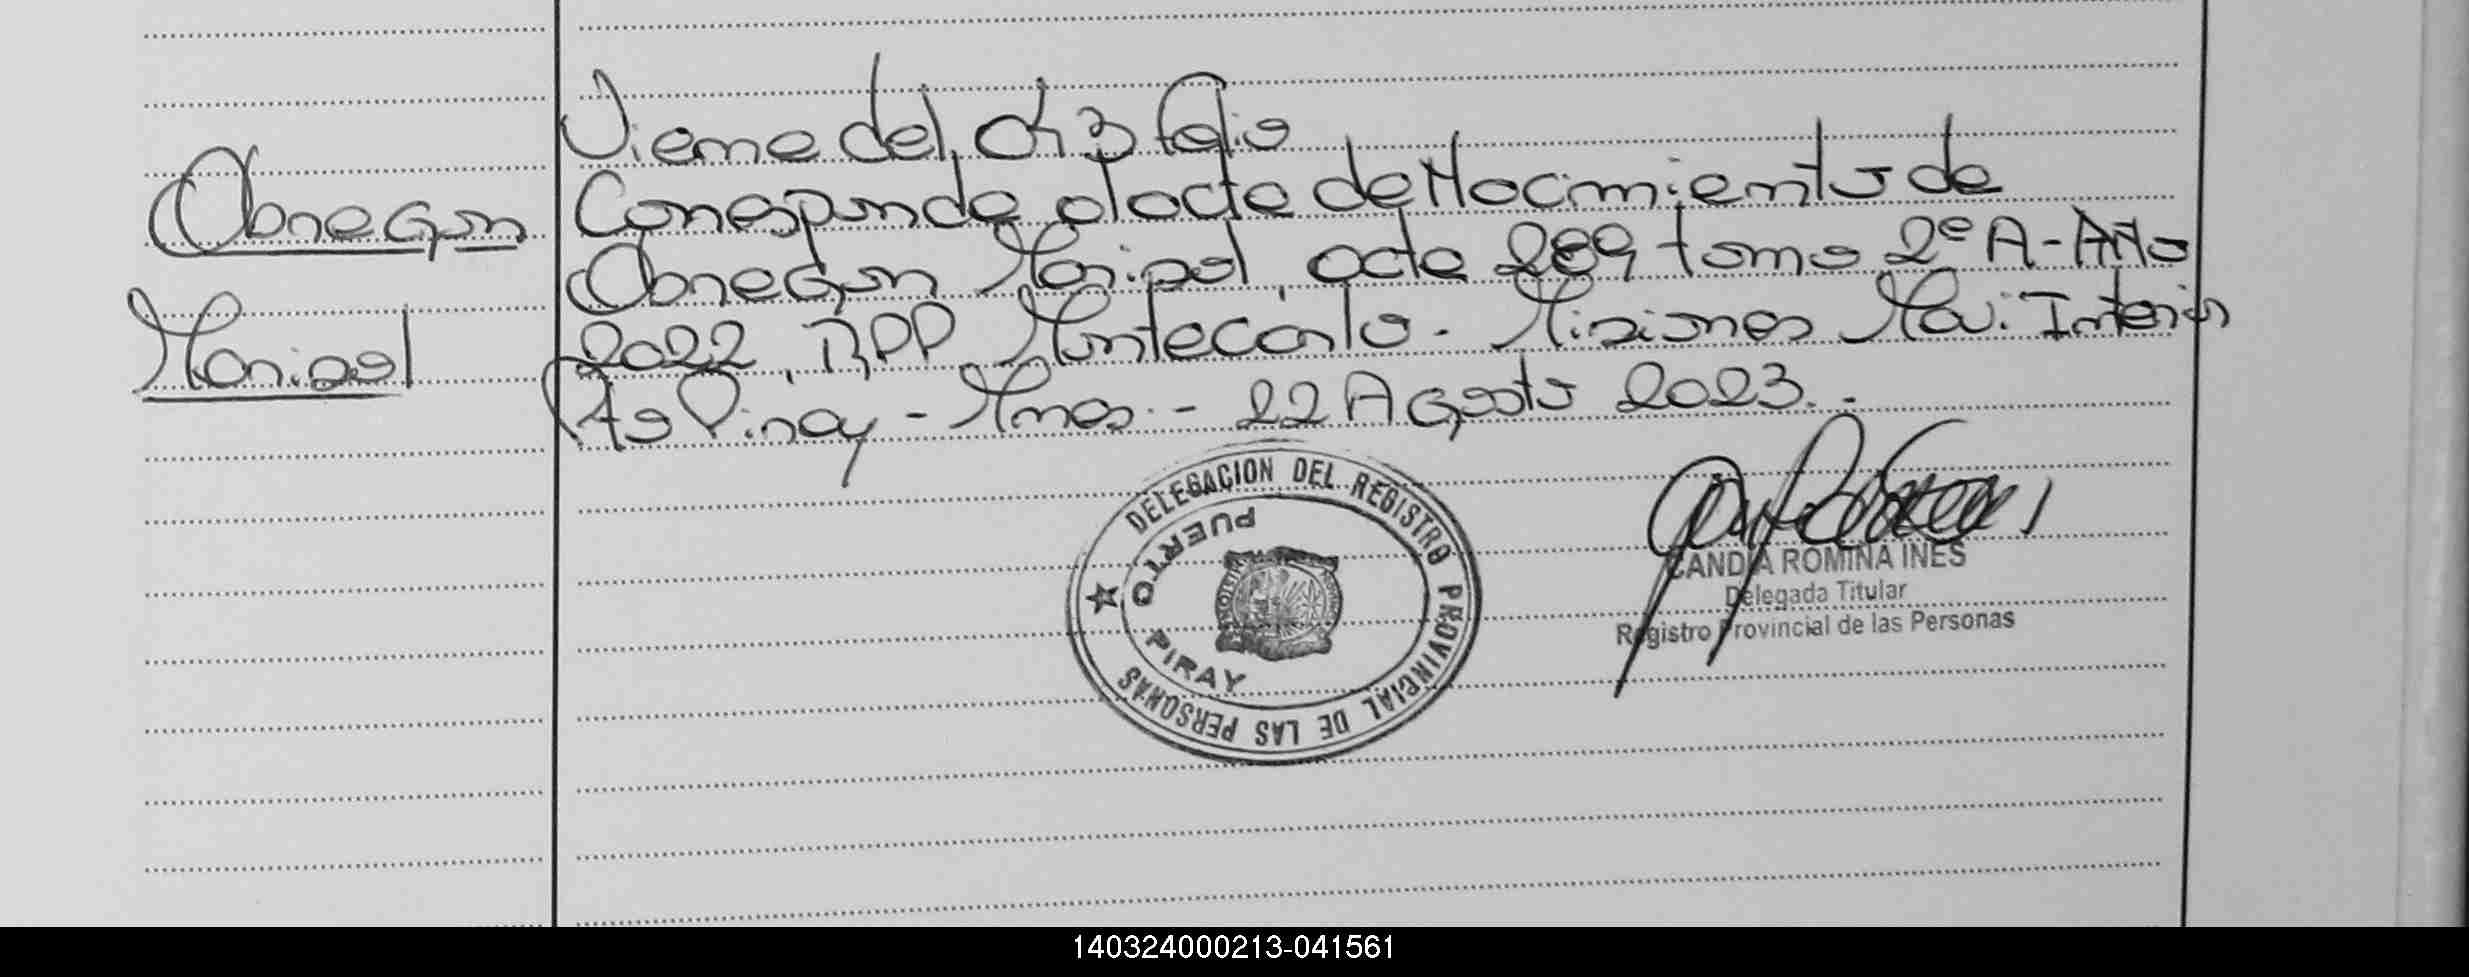 Viene del 043 folio
Obregon
Corresponde al acta de Nacimiento de
Obregon Marisol, acta 289 tomo 2º A - Año
Marisol
2022, RPP Montecarlo - Misiones Mov. Interior
Pto Piray - Mnes. - 22 Agosto 2023. -
DELEGACION DEL REGISTRO PROVINCIAL DE LAS PERSONAS
PUERTO PIRAY
CANDIA ROMINA INES
Delegada Titular
Registro Provincial de las Personas
140324000213-041561